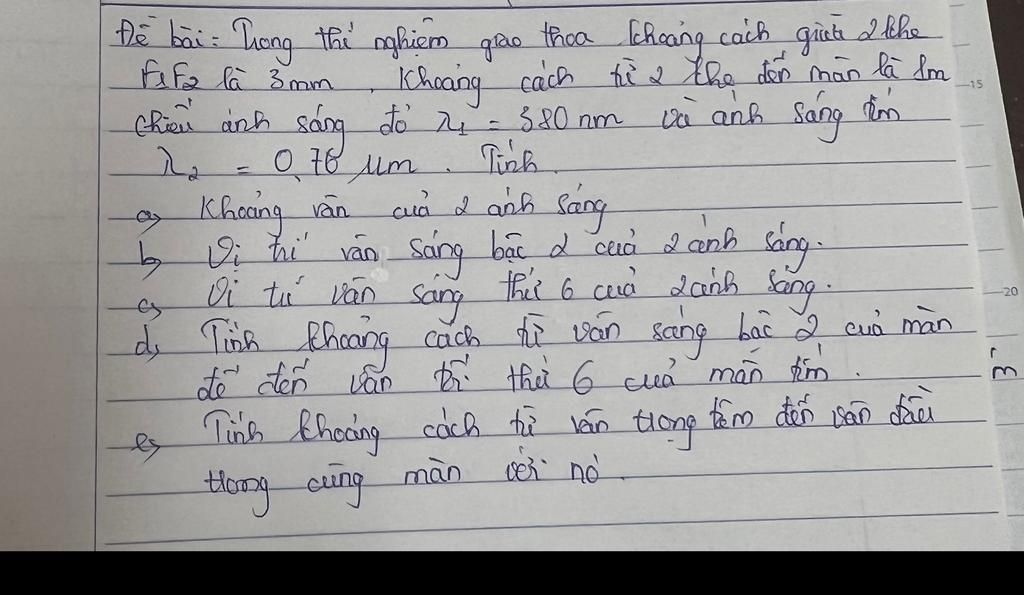 Đề bài: Trong thí nghiệm giao thoa khoảng cách giữa 2 khe
F1F2 là 3mm, khoảng cách từ 2 khe đến màn là 1m
chiếu ánh sáng đỏ λ1 = 380 nm và ánh sáng tím
λ2 = 0,76 μm. Tính.
a, Khoảng vân của 2 ánh sáng
b, Vị trí vân sáng bậc 2 của 2 ánh sáng.
c, Vị trí vân sáng thứ 6 của 2 ánh sáng.
d, Tính khoảng cách từ vân sáng bậc 2 của màn
đỏ đến vân tối thứ 6 của màn tím.
e, Tính khoảng cách từ vân trong tâm đến vân đầu
trong cùng màn với nó.
15
20
m